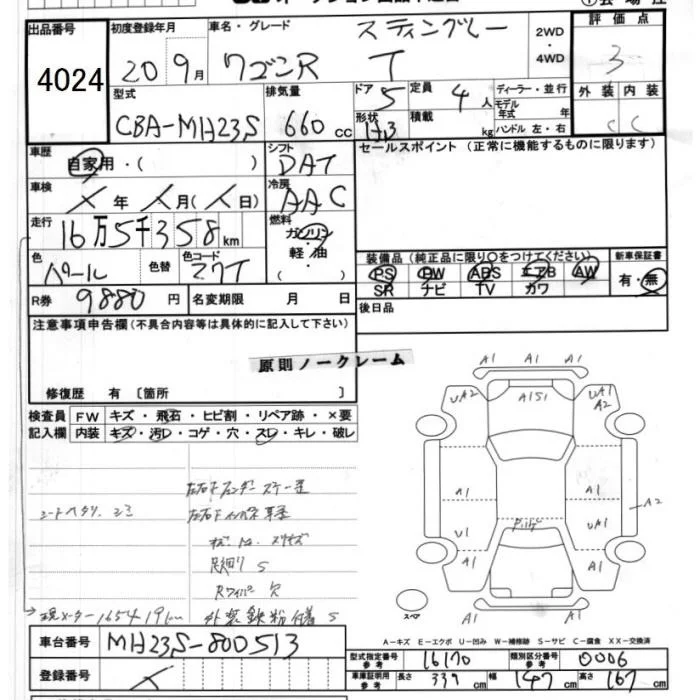 出品番号 初度登録年月 車名・グレード スティングレー 2WD・4WD 評価点
4024 20年9月 ワゴンR T 3
型式 排気量 ドア 定員 ディーラー・並行 外装 内装
CBA-MH23S 660cc 5 4人 モデル年式 年 C C
形状 HB 積載 kg ハンドル 左・右
車歴 自家用・( ) シフト DAT セールスポイント (正常に機能するものに限ります)
車検 X年 X月(X日) 冷房 AAC
走行 16万5千358km 燃料 ガソリン 軽・油
色 パール 色替 色コード ZWT
装備品 (純正品に限り○をつけてください) 新車保証書
PS PW ABS エアB AW 有・無
SR ナビ TV カワ
R券 9880円 名変期限 月 日 後日品
注意事項申告欄(不具合内容等は具体的に記入して下さい)
原則ノークレーム
修復歴 有 〔箇所 〕
検査員記入欄 FW キズ・飛石・ヒビ割・リペア跡・×要
内装 キズ・汚レ・コゲ・穴・スレ・キレ・破レ
シートヘタリ、シミ
足回りS
Rワイパー穴
現メーター165419km 外装鉄粉付着S
A1 A1 A1
UA2 A151 UA1
A2
A1 A1 A2
U1 UA1
A1 A1
A1
スペア
A-キズ E-エクボ U-凹み W-補修跡 S-サビ C-腐食 XX-交換済
車台番号 MH23S-800513
登録番号 X
型式指定番号 参考 16170 類別区分番号 参考 0006
車庫証明用 参考 長さ 339cm 幅 147cm 高さ 167cm